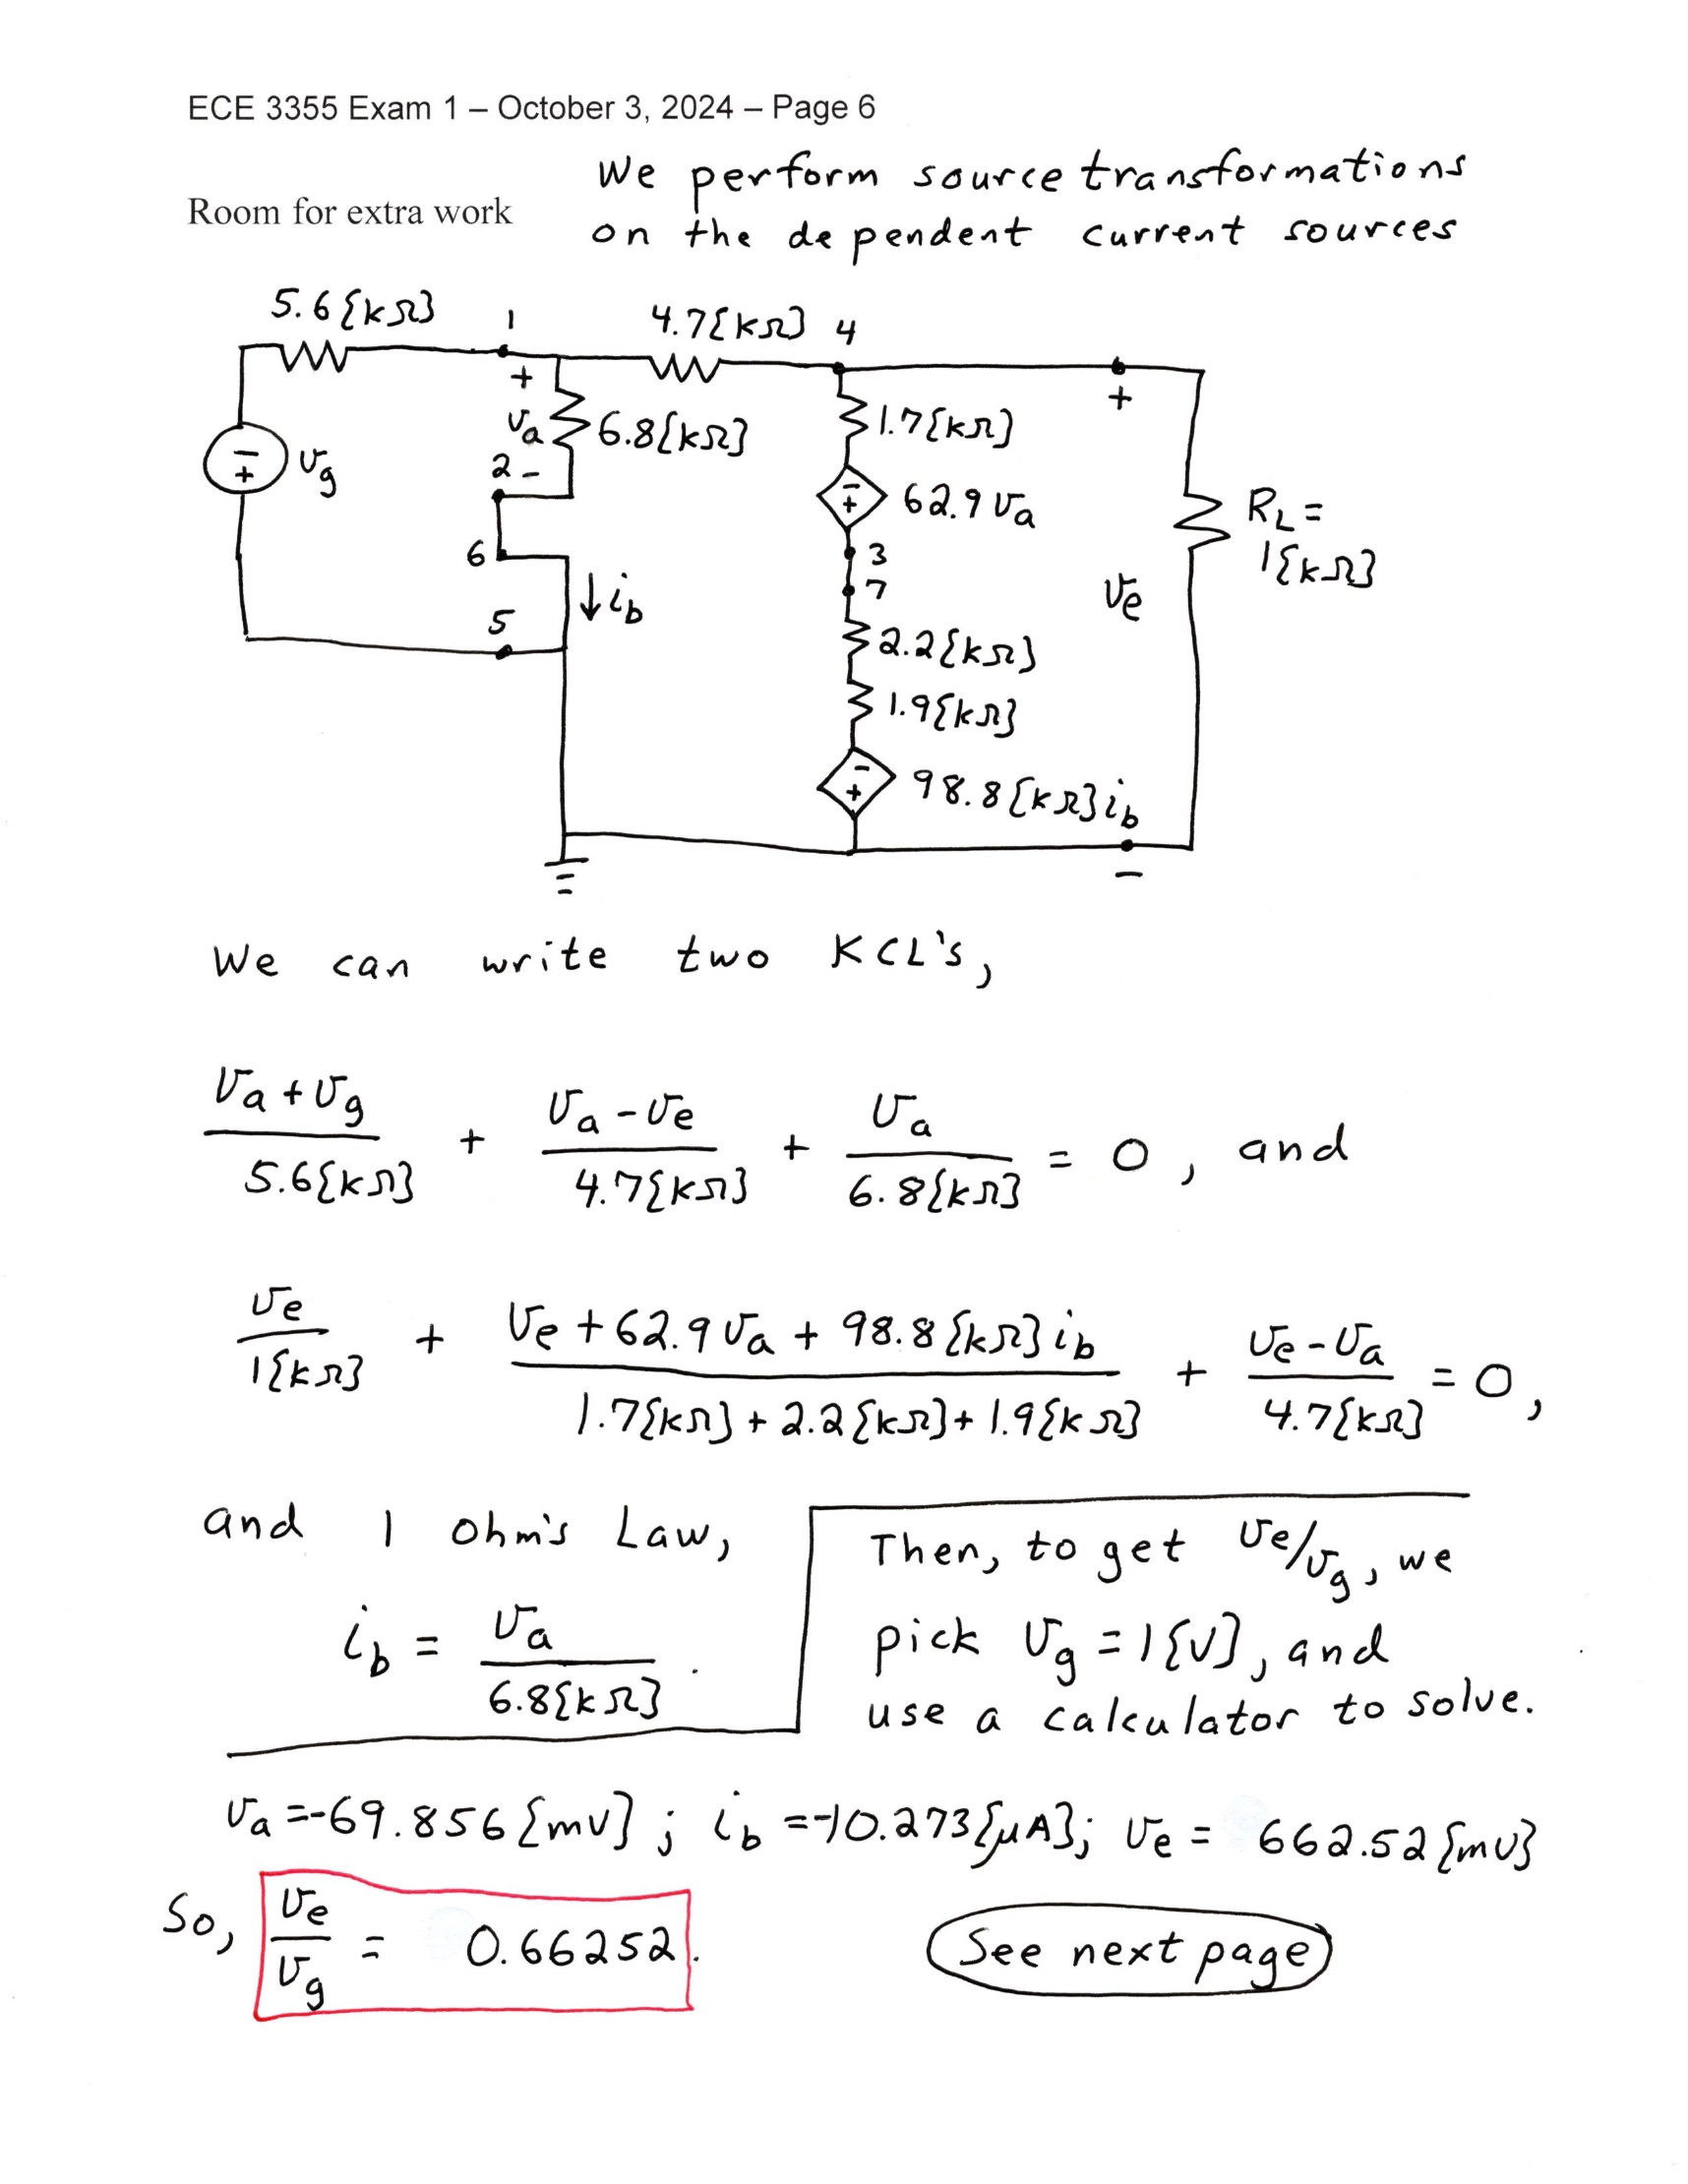 ECE 3355 Exam 1 – October 3, 2024 – Page 6
Room for extra work
We perform source transformations
on the dependent current sources
5.6{kΩ}
1
4.7{kΩ}
4
+
va
6.8{kΩ}
2 -
1.7{kΩ}
+
-
+
vg
-
+
62.9 va
RL =
1{kΩ}
6
3
7
↓ib
ve
5
2.2{kΩ}
1.9{kΩ}
-
+
98.8{kΩ}ib
-
We can write two KCL's,
va + vg / 5.6{kΩ} + va - ve / 4.7{kΩ} + va / 6.8{kΩ} = 0, and
ve / 1{kΩ} + ve + 62.9 va + 98.8{kΩ}ib / 1.7{kΩ} + 2.2{kΩ} + 1.9{kΩ} + ve - va / 4.7{kΩ} = 0,
and 1 Ohm's Law,
ib = va / 6.8{kΩ}.
Then, to get ve/vg, we
pick vg = 1{V}, and
use a calculator to solve.
va = -69.856{mV}; ib = -10.273{μA}; ve = 662.52{mV}
So, ve / vg = 0.66252.
See next page